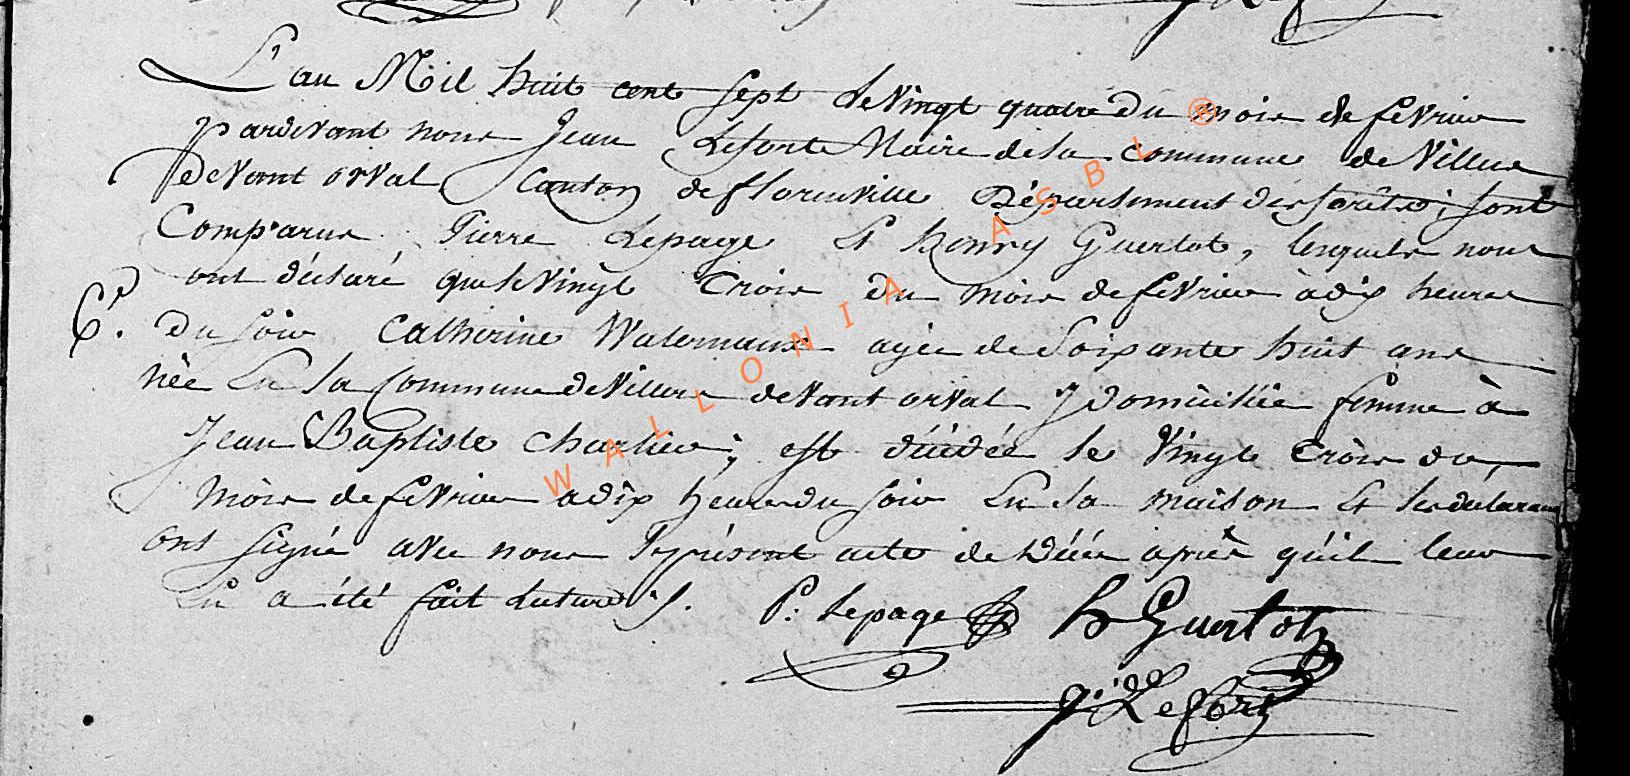 L'an Mil huit cent sept le vingt quatre du mois de fevrier
pardevant nous Jean Lefort Maire de la commune de Villers
devant orval Canton de florenville Département des forêts, sont
Comparus Pierre Lepage Et henry Guertot, lesquels nous
ont déclaré que le vingt trois du mois de fevrier à dix heures
6e.
du soir Catherine Waternaux agée de soixante huit ans
née En la Commune de Villers devant orval y domiciliée femme à
Jean Baptiste Charlier, est décédée le vingt trois du
mois de fevrier a dix heures du soir En sa maison Et les déclarans
ont signé avec nous le présent acte de décés après qu'il leur
En a été fait lecture
P: Lepage h Guertot
J: Lefort
WALLONIA ASBL ®